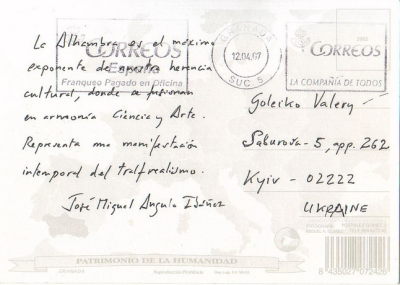 La Alhambra es el máximo
exponente de nuestra herencia
cultural, donde se fusionan
en armonía Ciencia y Arte.
Representa una manifestación
intemporal del tralfrealismo.
José Miguel Angulo Ibáñez
CORREOS
España
Franqueo Pagado en Oficina
GRANADA
12.04.07
SUC. 5
2002
CORREOS
LA COMPAÑÍA DE TODOS
Goleiko Valery
Saburova-5, app. 262
Kyiv - 02222
UKRAINE
PATRIMONIO DE LA HUMANIDAD
GRANADA
Reproducción Prohibida
8 435027 072426